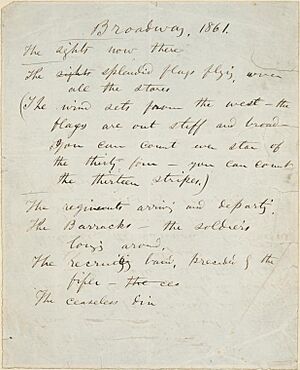 Broadway, 1861.
The sights now there
The sights splendid flags flying over
all the stores
(The wind sets from the west – the
flags are out stiff and broad –
you can count ever star of
the thirty four – you can count
the thirteen stripes.)
The regiments arriving and departing,
The Barracks – the soldiers
lounging around,
The recruiting band, preceded by the
fifer – the ces
The ceaseless din